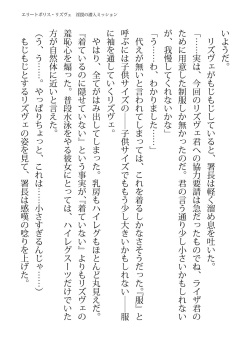 エリートポリス・リズヴェ 淫獄の潜入ミッション
いようだ。
　リズヴェがもじもじしていると、署長は軽く溜め息を吐いた。
「……実は、今回のリズヴェ君への協力要請は急だったものでね、ライザ君の
ために用意した制服しか無かったのだ。君の言う通り少し小さいかもしれない
が、我慢してくれないかな」
「う……わ、わかりました……」
　代えが無いと言われてしまっては、これを着るしかなさそうだった。『服』と
呼ぶには子供サイズの――子供サイズでももう少し大きいかもしれない――服
に袖を通していくリズヴェ。
　やはり、全てがはみ出してしまった。乳房もハイレグもほとんど丸見えだ。
『着ているのに隠せていない』という事実が『着ていない』よりもリズヴェの
羞恥心を煽った。普段水泳をやる彼女にとっては、ハイレグスーツだけでいた
方が自然体に近いと言えた。
（う、う……。やっぱりちょっと、これは……小さすぎるんじゃ……）
　もじもじとするリズヴェの姿を見て、署長は感嘆の唸りを上げた。